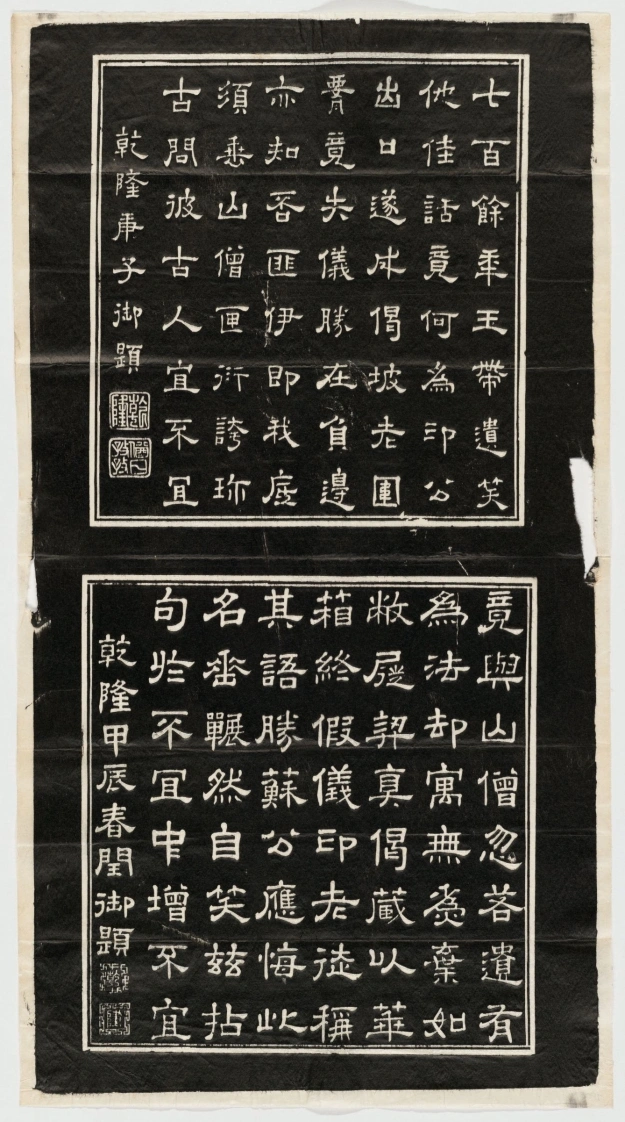 七百餘年玉帶遺笑
他佳話竟何為印公
出口遂成偈坡老圍
腰竟失儀勝在負邊
亦知否匪伊即我底
須垂山僧匣衍誇珍
古問彼古人宜不宜
乾隆庚子御題
乾隆
竟與山僧忽若遺有
為法却寓無為棄如
敝屣契真偈藏以華
箱終假儀印老徒稱
其語勝蘇公應悔此
名垂囅然自笑茲拈
句於不宜中增不宜
乾隆甲辰春閏御題